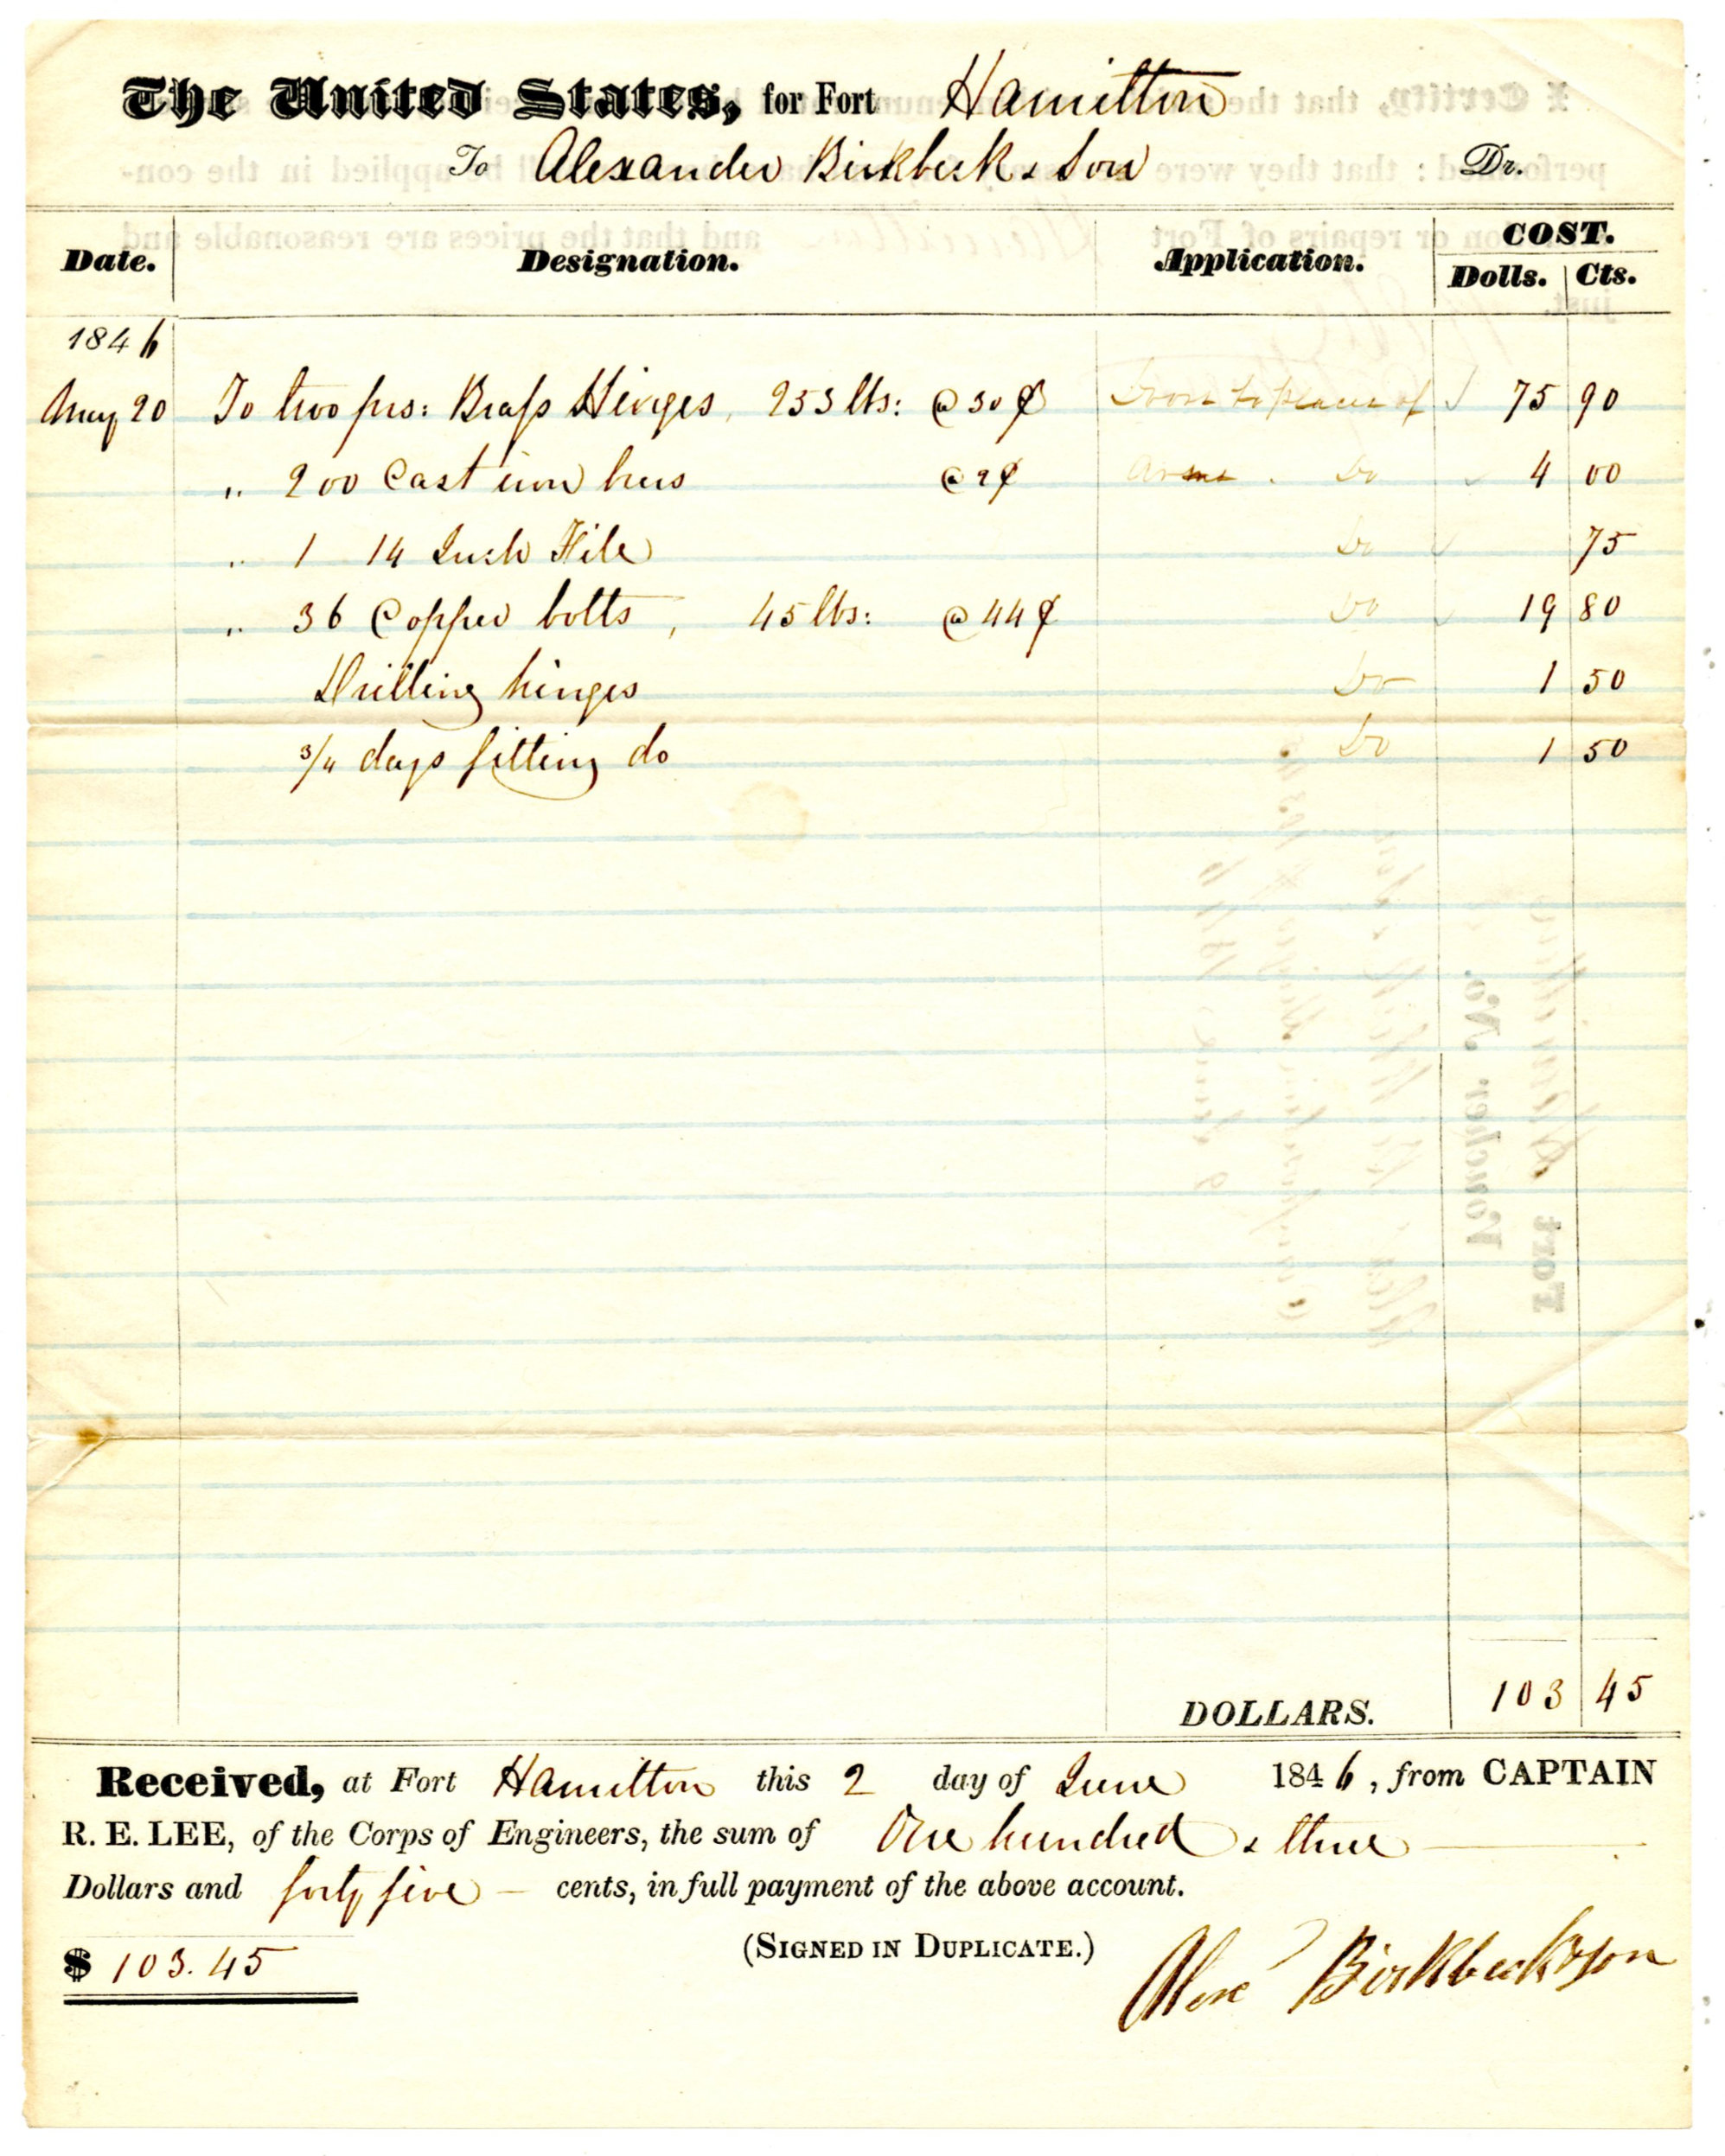 The United States, for Fort Hamilton
To Alexander Birkbeck & Son Dr.
Date. Designation. Application. COST.
Dolls. Cts.
1846
May 20 To two prs: Brass Hinges, 253 lbs: @ 30 ¢ Door to place of 75 90
" 200 Cast iron @ 2 ¢ arms. Do 4 00
" 1 14 Inch File Do 75
" 36 Copper bolts, 45 lbs: @ 44 ¢ Do 19 80
Drilling hinges Do 1 50
3/4 days fitting do Do 1 50
DOLLARS. 103 45
Received, at Fort Hamilton this 2 day of June 1846, from CAPTAIN
R. E. LEE, of the Corps of Engineers, the sum of One hundred & three
Dollars and forty five — cents, in full payment of the above account.
(SIGNED IN DUPLICATE.)
$ 103.45
Alex Birkbeck & Son